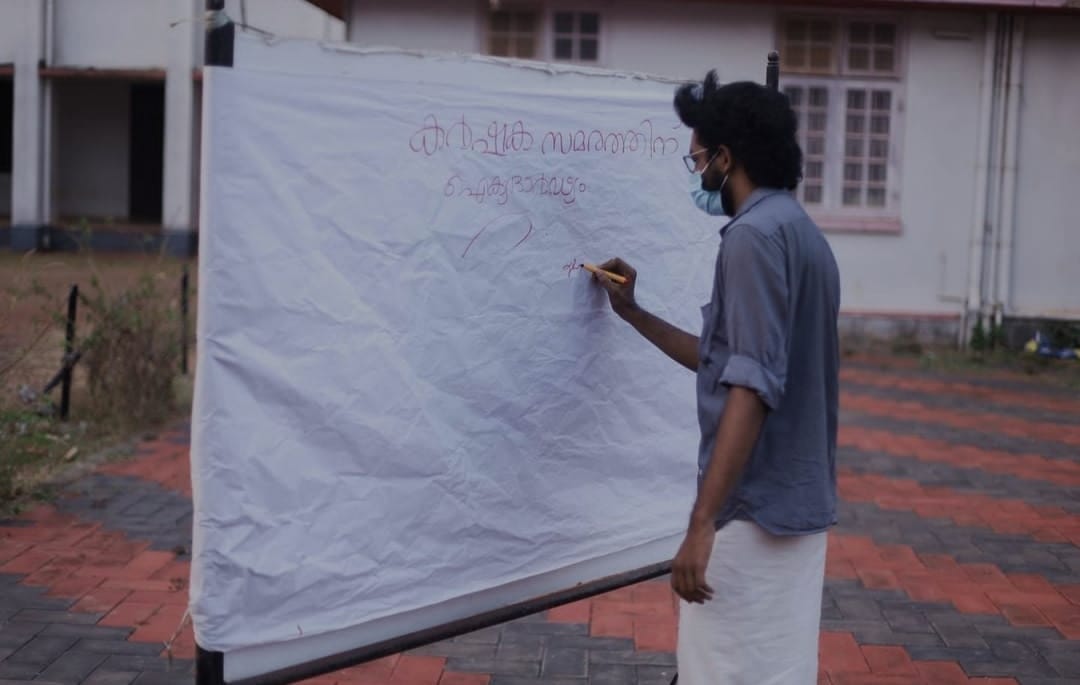 കർഷക സമരത്തിന്
ഐക്യദാർഢ്യം